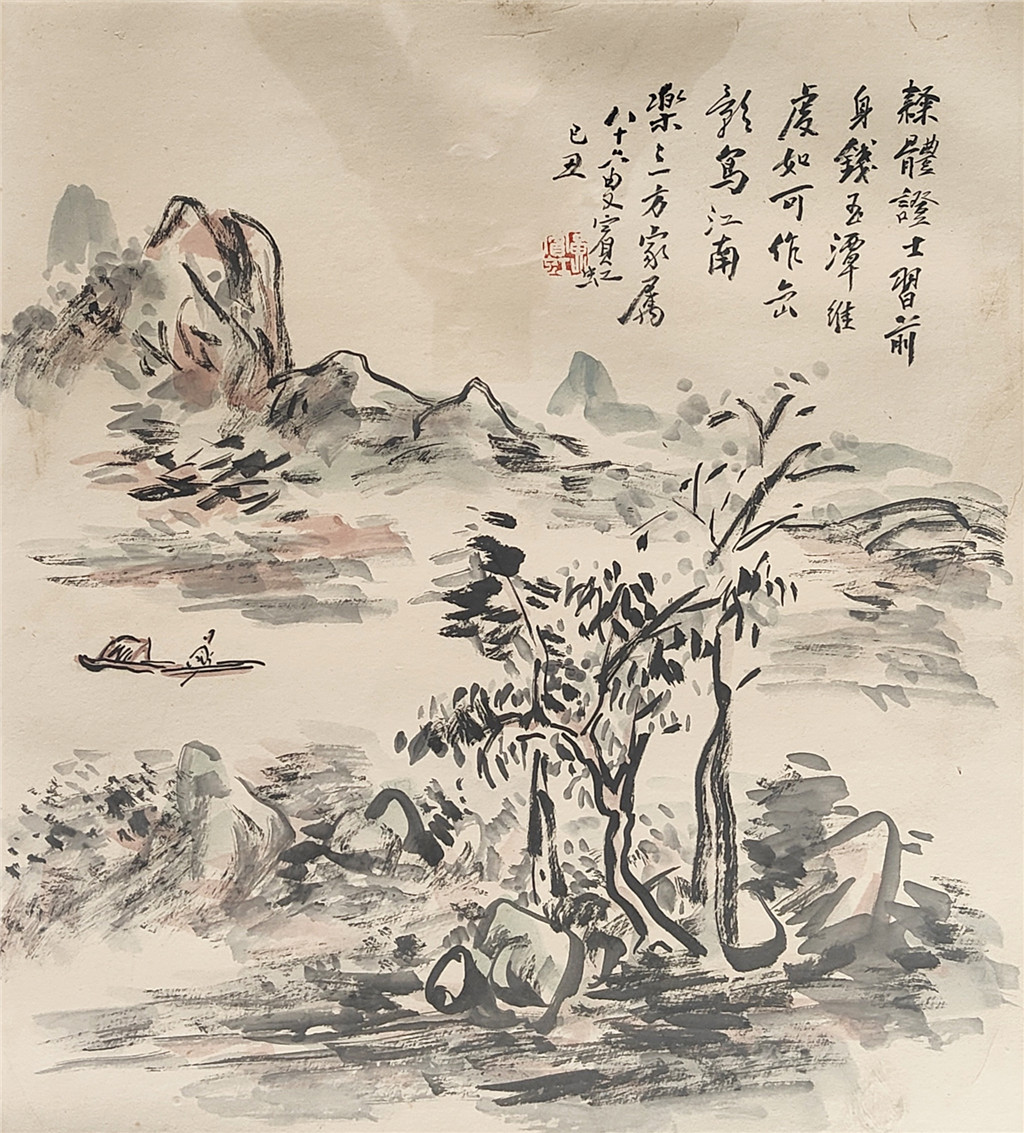 隸體證士習前
身錢玉潭維
虔如可作企
影寫江南
樂之方家屬
八十六叟賓虹
己丑